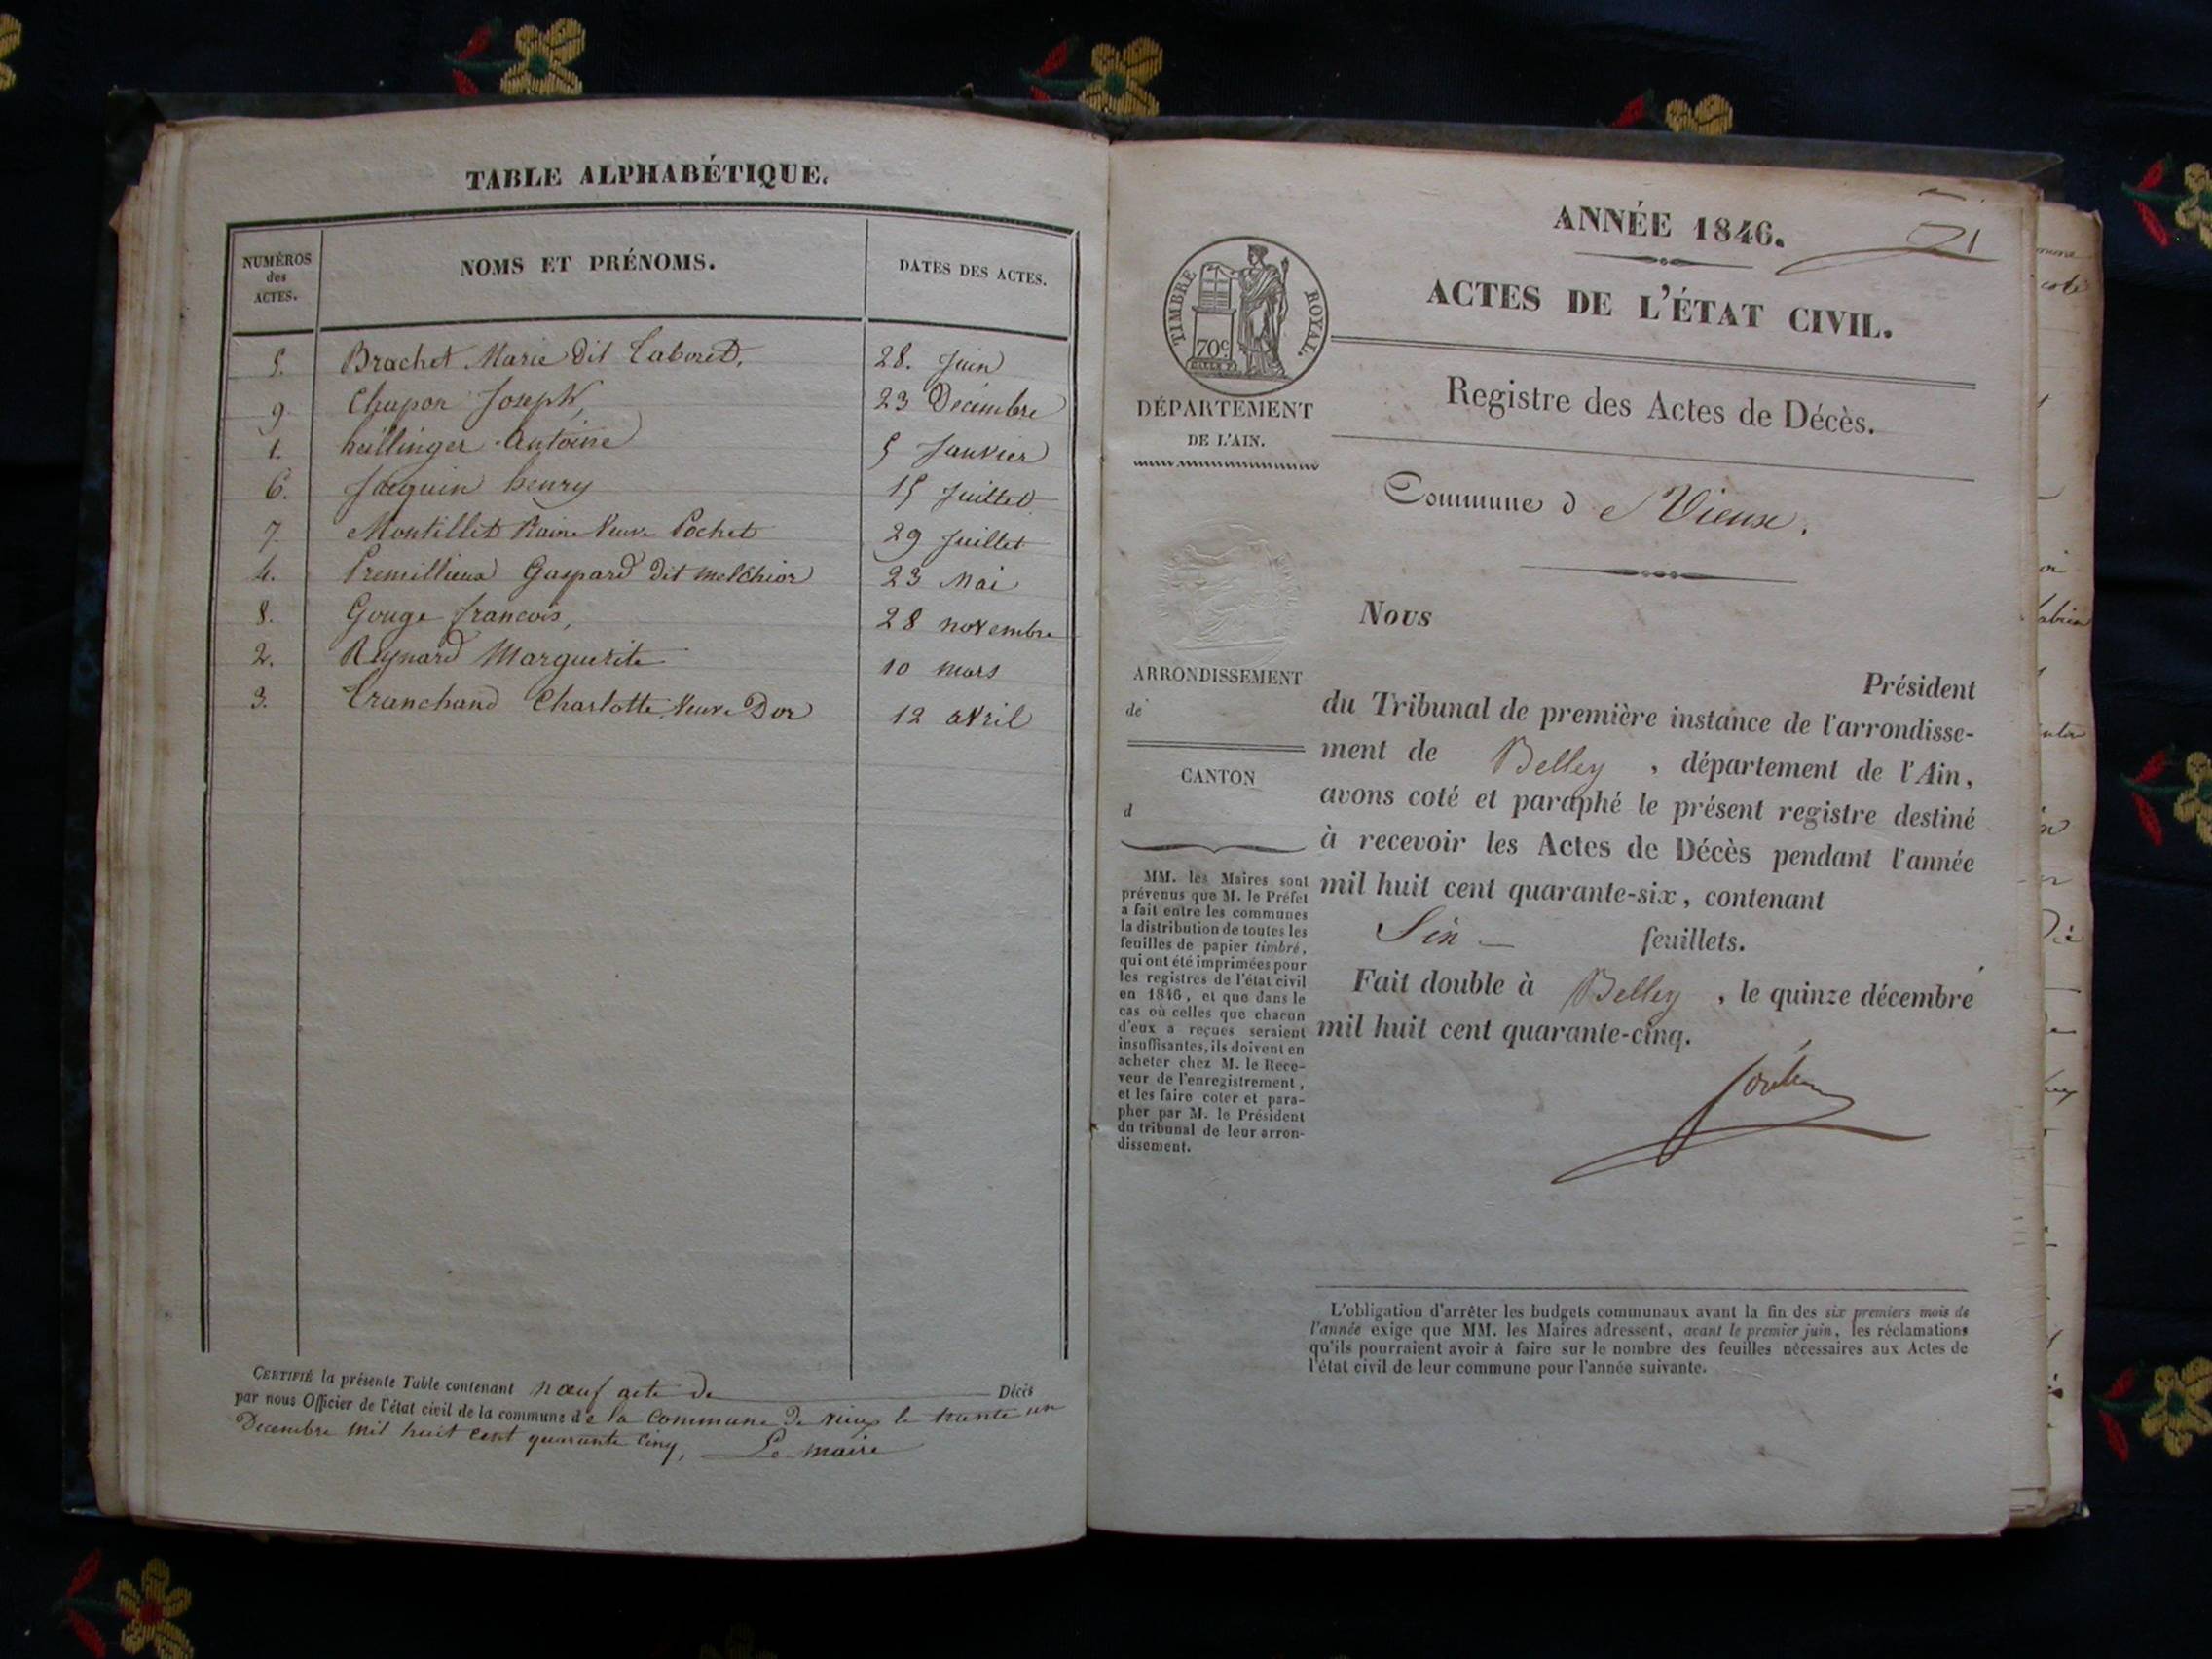 TABLE ALPHABÉTIQUE.
NUMÉROS des ACTES. NOMS ET PRÉNOMS. DATES DES ACTES.
5. Brachet Marie dit Laboret, 28. Juin
9. Chapon Joseph, 23 Décembre
1. heillinger Antoine 5 Janvier
6. Jacquin henry 15 Juillet
7. Montillet Raine Veuve Pochet 29 Juillet
4. Premillieux Gaspard dit Melchior 23 Mai
8. Gouge francois, 28 novembre
2. Reynard Marguerite 10 mars
3. Tranchand Charlotte Veuve Dor 12 avril
CERTIFIÉ la présente Table contenant nœuf acte de Décès
par nous Officier de l'état civil de la commune de la Commune de vieu le trente un
Decembre mil huit Cent quarante Cinq, Le maire
ANNÉE 1846.
21
ACTES DE L'ÉTAT CIVIL.
TIMBRE ROYAL.
70c
Registre des Actes de Décès.
DÉPARTEMENT
DE L'AIN.
Commune d e Vieux.
Nous
Président
du Tribunal de première instance de l'arrondisse-
ment de Belley , département de l'Ain,
avons coté et paraphé le présent registre destiné
à recevoir les Actes de Décès pendant l'année
mil huit cent quarante-six, contenant
Six feuillets.
Fait double à Belley , le quinze décembre
mil huit cent quarante-cinq.
ARRONDISSEMENT
de
CANTON
d
MM. les Maires sont
prévenus que M. le Préfet
a fait entre les communes
la distribution de toutes les
feuilles de papier timbré,
qui ont été imprimées pour
les registres de l'état civil
en 1846, et que dans le
cas où celles que chacun
d'eux a reçues seraient
insuffisantes, ils doivent en
acheter chez M. le Rece-
veur de l'enregistrement,
et les faire coter et para-
pher par M. le Président
du tribunal de leur arron-
dissement.
L'obligation d'arrêter les budgets communaux avant la fin des six premiers mois de
l'année exige que MM. les Maires adressent, avant le premier juin, les réclamations
qu'ils pourraient avoir à faire sur le nombre des feuilles nécessaires aux Actes de
l'état civil de leur commune pour l'année suivante.